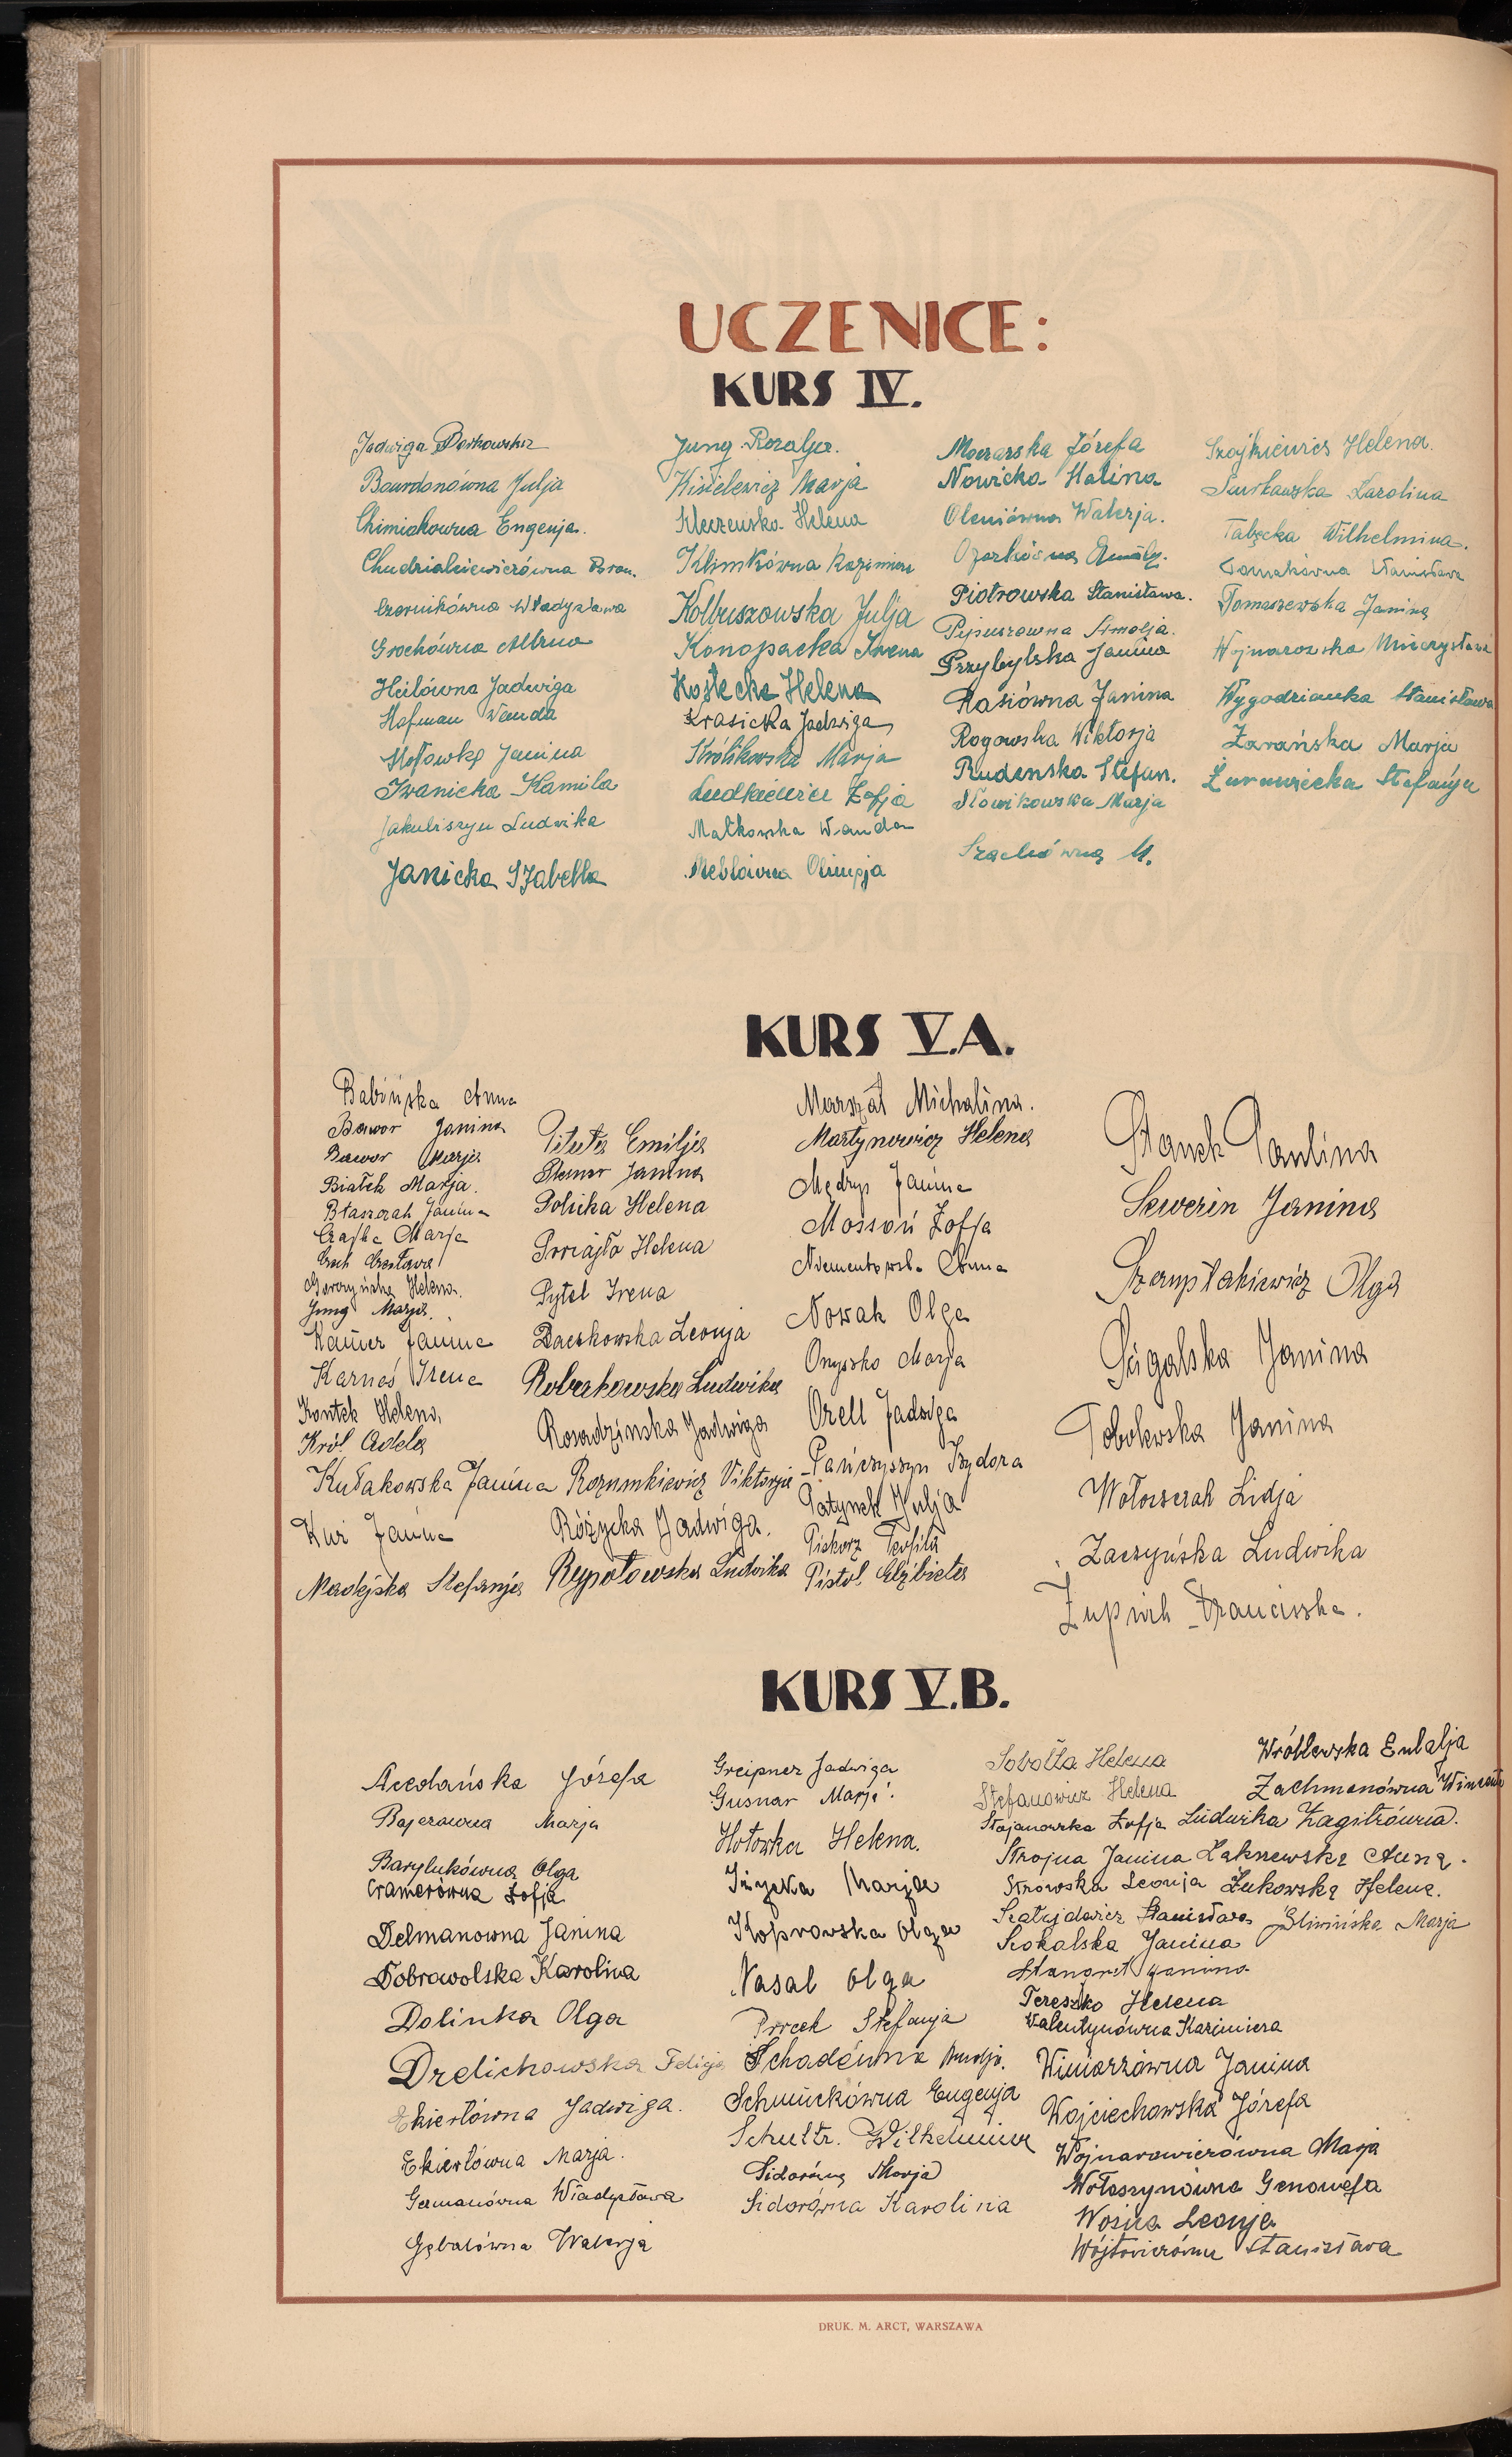 UCZENICE:
KURS IV.
Jadwiga Borkowska
Bourdonówna Julja
Chimiakowna Eugenja.
Chudzialkiewiczówna Bron.
Czernikówna Władysława
Grochówna Albina
Heilówna Jadwiga
Hofman Wanda
Hołowka Janina
Iwanicka Kamila
Jakubiszyn Ludwika
Janicka Izabella
Jung Rozalja.
Kisielewicz Marja
Kleczeńska Helena
Klimkówna Kazimiera
Kolbuszowska Julja
Konopacka Irena
Kostecka Helena
Krasicka Jadwiga
Królikowska Marja
Ludkiewicz Zofja
Małkowska Wanda
Meblówna Olimpja
Moczarska Józefa
Nowicka Halina
Oleniówna Walerja.
Piotrowska Stanisława.
Przybylska Janina
Rasiówna Janina
Rogowska Wiktorja
Rudenska Stefan.
Słowikowska Marja
Szachówna M.
Szojkiewicz Helena.
Karolina
Tabęcka Wilhelmina.
Tomakówna Stanisława
Tomaszewska Janina
Wojnarowska Mieczysława
Wygodzianka Stanisława
Zarańska Marja
Żurawiecka Stefanja
KURS V.A.
Babińska Anna
Bawor Janina
Bawor Marja
Białek Marja.
Błaszczak Janina
Czajka Marja
Czech Czesława
Goworzyńska Helena.
Jung Marja.
Kamer Janina
Karnaś Irena
Kontek Helena,
Król Adela
Kułakowska Janina
Kuś Janina
Madejska Stefanja
Pituła Emilja
Plemer Janina
Polička Helena
Prociajło Helena
Pytel Irena
Raczkowska Leonja
Robakowska Ludwika
Rosadzinska Jadwiga
Rozumkiewicz Viktorja
Różycka Jadwiga.
Rypotowska Ludwika
Marszał Michalina.
Martynowicz Helena
Mędryś Janina
Mossoń Zofja
Niementowska Anna
Nowak Olga
Onyszko Marja
Orell Jadwiga
Pańczyszyn Izydora
Patynek Julja
Piskorz Teofila
Pistol Elżbieta
Stanek Paulina
Sewerin Janina
Szempłakiewicz Olga
Ścigalska Janina
Tobolewska Janina
Wołoszczak Lidja
Zaczyńska Ludwika
Żupnik Franciszka.
KURS V.B.
Józefa
Bajerówna Marja
Barylukówna Olga
Cramerówna Zofja
Delmanowna Janina
Dobrowolska Karolina
Dolinka Olga
Drelichowska Felicja
Ekiertówna Jadwiga.
Ekiertówna Marja.
Germanówna Władysława
Gębalówna Walerja
Greipner Jadwiga
Gusnar Marja.
Hołowka Helena.
Iżycka Marja
Koprowska Olga
Nasal Olga
Procek Stefanja
Schadéwna Amalja.
Schmückówna Eugenja
Schultz. Wilhelmina
Sidorówna Marja
Sidorówna Karolina
Sobołta Helena
Stefanowicz Helena
Stojanowska Zofja
Strojna Janina
Strowska Leonja
Szatajdowicz Stanisława
Szokalska Janina
Stangret Janina
Tereszko Helena
Walentynówna Kazimiera
Winiarzówna Janina
Wojciechowska Józefa
Wojnarowiczówna Marja
Wołoszynówna Genowefa
Wośna Leonja
Wójtowiczówna Stanisława
Wróblewska Eulalja
Zachmanówna Wincenta
Ludwika Zagitrówna.
Łaknewska Anna.
Żukowska Helena.
Śliwińska Marja
DRUK. M. ARCT, WARSZAWA